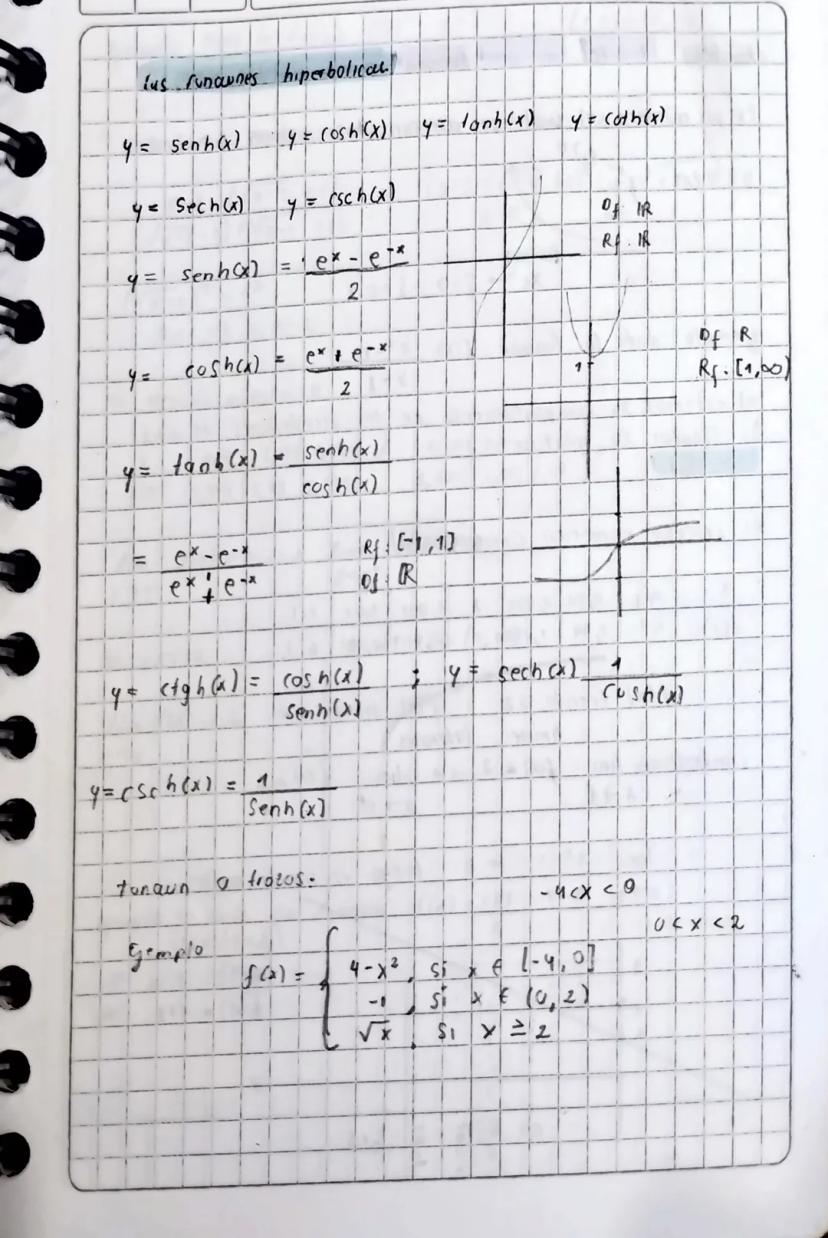 las funciones hiperbolicas
y = senh(x) y = cosh(x) y = tanh(x) y = coth(x)
y = Sech(x) y = csch(x)
Df IR
Rf. IR
y = senh(x) = e^x - e^-x / 2
Df R
Rf. [1,∞)
1
y = cosh(x) = e^x + e^-x / 2
y = tanh(x) = senh(x) / cosh(x)
= e^x - e^-x / e^x + e^-x
Rf: [-1,1]
Df: IR
y = ctgh(x) = cosh(x) / senh(x) ; y = sech(x) 1 / cosh(x)
y = csch(x) = 1 / Senh(x)
funcion a trozos:
-4<x<0
0<x<2
Ejemplo
f(x) = { 4-x², si x ∈ [-4,0]
-1, si x ∈ (0,2)
√x, si x ≥ 2